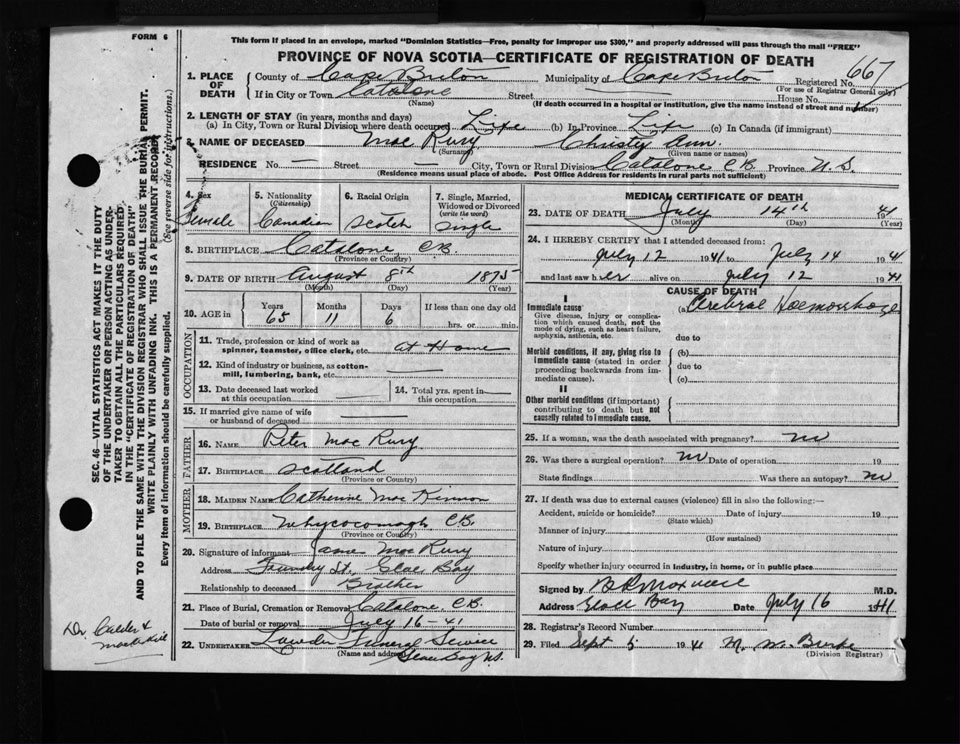 FORM 6
This form if placed in an envelope, marked "Dominion Statistics—Free, penalty for improper use $300," and properly addressed will pass through the mail "FREE"
PROVINCE OF NOVA SCOTIA—CERTIFICATE OF REGISTRATION OF DEATH
1. PLACE OF DEATH
County of Cape Breton Municipality of Cape Breton Registered No. 667
(For use of Registrar General only)
If in City or Town Catalone Street House No.
(Name) (If death occurred in a hospital or institution, give the name instead of street and number)
2. LENGTH OF STAY (in years, months and days)
(a) In City, Town or Rural Division where death occurred Life (b) In Province Life (c) In Canada (if immigrant)
3. NAME OF DECEASED Mac Rury Christy Ann.
(Surname) (Given name or names)
RESIDENCE No. — Street — City, Town or Rural Division Catalone C.B. Province N.S.
(Residence means usual place of abode. Post Office Address for residents in rural parts not sufficient)
4. Sex
Female
5. Nationality (Citizenship)
Canadian
6. Racial Origin
Scotch
7. Single, Married, Widowed or Divorced (write the word)
Single
8. BIRTHPLACE Catalone C.B.
(Province or Country)
9. DATE OF BIRTH August 8th 1875
(Month) (Day) (Year)
10. AGE in Years Months Days If less than one day old
65 11 6 hrs. or min.
OCCUPATION
11. Trade, profession or kind of work as spinner, teamster, office clerk, etc. At Home
12. Kind of industry or business, as cotton-mill, lumbering, bank, etc. —
13. Date deceased last worked at this occupation —
14. Total yrs. spent in this occupation —
15. If married give name of wife or husband of deceased —
FATHER
16. NAME Peter Mac Rury
17. BIRTHPLACE Scotland
(Province or Country)
MOTHER
18. MAIDEN NAME Catherine Mac Kinnon
19. BIRTHPLACE Whycocomagh C.B.
(Province or Country)
20. Signature of informant James Mac Rury
Address Foundry St., Glace Bay
Relationship to deceased Brother
21. Place of Burial, Cremation or Removal Catalone, C.B.
Date of burial or removal July 16-41
22. UNDERTAKER Funeral Service
(Name and address) Glace Bay N.S.
MEDICAL CERTIFICATE OF DEATH
23. DATE OF DEATH July 14th 1941
(Month) (Day) (Year)
24. I HEREBY CERTIFY that I attended deceased from:
July 12 1941 to July 14 1941
and last saw her alive on July 12 1941
CAUSE OF DEATH
I
Immediate cause
Give disease, injury or complication which caused death, not the mode of dying, such as heart failure, asphyxia, asthenia, etc.
(a) Cerebral Haemorrhage
due to
Morbid conditions, if any, giving rise to immediate cause (stated in order proceeding backwards from immediate cause).
(b)
due to
(c)
II
Other morbid conditions (if important) contributing to death but not causally related to immediate cause.
25. If a woman, was the death associated with pregnancy? no
26. Was there a surgical operation? no Date of operation 19
State findings Was there an autopsy? no
27. If death was due to external causes (violence) fill in also the following:—
Accident, suicide or homicide? Date of injury 19
(State which)
Manner of injury
(How sustained)
Nature of injury
Specify whether injury occurred in industry, in home, or in public place
Signed by M.D.
Address Glace Bay Date July 16 1941
28. Registrar's Record Number
29. Filed Sept 5 1941 M. M. Burke
(Division Registrar)
SEC. 46—VITAL STATISTICS ACT MAKES IT THE DUTY OF THE UNDERTAKER OR PERSON ACTING AS UNDERTAKER TO OBTAIN ALL THE PARTICULARS REQUIRED IN THE "CERTIFICATE OF REGISTRATION OF DEATH" AND TO FILE THE SAME WITH THE DIVISION REGISTRAR WHO SHALL ISSUE THE BURIAL PERMIT.
WRITE PLAINLY WITH UNFADING INK. THIS IS A PERMANENT RECORD
Every item of information should be carefully supplied. (See reverse side for instructions.)
Dr. Calder &